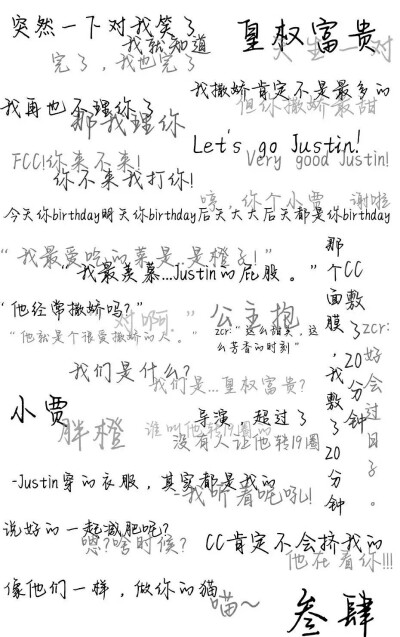 突然一下对我笑了
我就知道
皇权富贵
天生一对
完了，我也完了
我撒娇肯定不是最多的
但你撒娇最甜
我再也不理你了
那我理你
Let's go Justin!
Very good Justin!
FCC!你来不来!
你不来我打你!
唉，你个小贾
谢啦
今天你birthday明天你birthday后天大大后天都是你birthday
“我最爱吃的菜是..是橙子!”
“我最羡慕...Justin的屁股。”
那个CC面膜，我敷了20分钟
敷了20分钟
zcr:好会过日子。
“他经常撒娇吗?”
对啊。”
“他就是个很爱撒娇的人。”
公主抱
zcr:“这么甜美，这么芳香的时刻”
我们是什么?
我们是...皇权富贵?
小贾
胖橙
导演，超过了
谁叫他转19圈的
没有人让他转19圈
-Justin穿的衣服，其实都是我的
-我听着呢吼!
说好的一起减肥呢?
嗯?啥时候?
CC肯定不会挤我的
他在看你!!!
像他们一样，做你的猫
喵～
叁肆